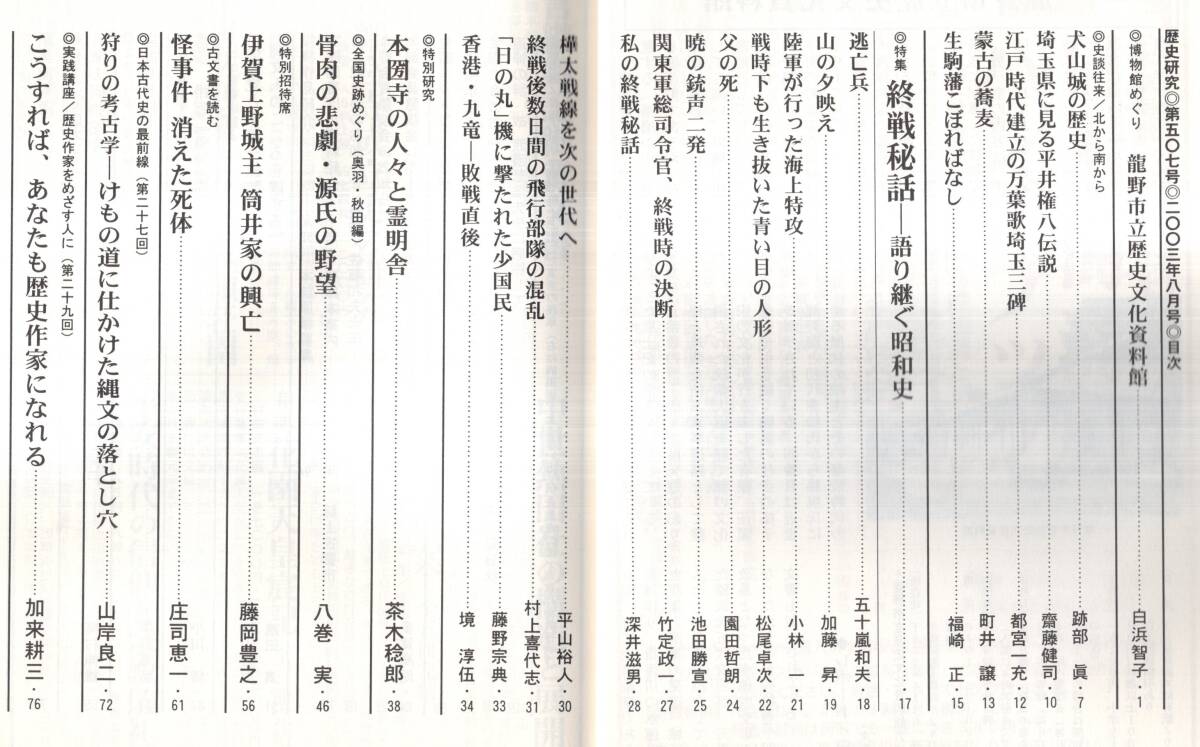 歴史研究◎第五〇七号◎二〇〇三年八月号◎目次
◎博物館めぐり 龍野市立歴史文化資料館 白浜智子・1
◎史談往来/北から南から
犬山城の歴史 跡部 眞・7
埼玉県に見る平井権八伝説 齋藤健司・10
江戸時代建立の万葉歌埼玉三碑 都宮一充・12
蒙古の蕎麦 町井 譲・13
生駒藩こぼればなし 福崎 正・15
◎特集 終戦秘話―語り継ぐ昭和史 17
逃亡兵 五十嵐和夫・18
山の夕映え 加藤 昇・19
陸軍が行った海上特攻 小林 一・21
戦時下も生き抜いた青い目の人形 松尾卓次・22
父の死 園田哲朗・24
暁の銃声二発 池田勝宣・25
関東軍総司令官、終戦時の決断 竹定政一・27
私の終戦秘話 深井滋男・28
樺太戦線を次の世代へ 平山裕人・30
終戦後数日間の飛行部隊の混乱 村上喜代志・31
「日の丸」機に撃たれた少国民 藤野宗典・33
香港・九竜―敗戦直後 境 淳伍・34
◎特別研究
本圀寺の人々と霊明舎 茶木稔郎・38
◎全国史跡めぐり(奥羽・秋田編)
骨肉の悲劇・源氏の野望 八巻 実・46
◎特別招待席
伊賀上野城主 筒井家の興亡 藤岡豊之・56
◎古文書を読む
怪事件 消えた死体 庄司恵一・61
◎日本古代史の最前線(第二十七回)
狩りの考古学―けもの道に仕かけた縄文の落とし穴 山岸良二・72
◎実践講座/歴史作家をめざす人に(第二十九回)
こうすれば、あなたも歴史作家になれる 加来耕三・76